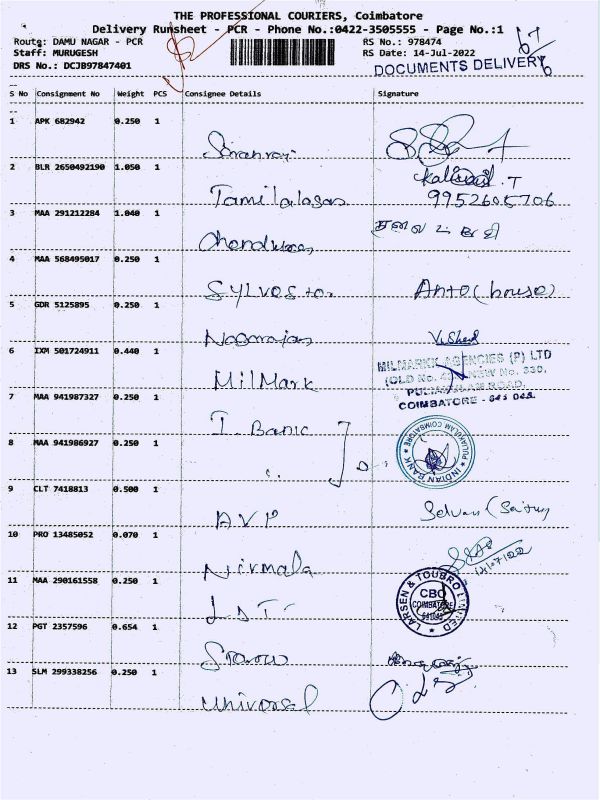 THE PROFESSIONAL COURIERS, Coimbatore
Delivery Runsheet - PCR - Phone No.:0422-3505555 - Page No.:1
Route: DAMU NAGAR - PCR RS No.: 978474
Staff: MURUGESH RS Date: 14-Jul-2022
DRS No.: DCJB97847401 DOCUMENTS DELIVERY
67
S No Consignment No Weight PCS Consignee Details Signature
1 APK 682942 0.250 1
2 BLR 2650492190 1.050 1
Tamilalagan 9952605706
3 MAA 291212284 1.040 1
4 MAA 568495017 0.250 1
Sylvestor Anto (house)
5 GDR 5125895 0.250 1
Nagarajan
6 IXM 501724911 0.440 1
MilMark MILMARKK AGENCIES (P) LTD
(OLD No. NEW No. 330,
PULIAKULAM ROAD,
COIMBATORE - 641 045
7 MAA 941987327 0.250 1
I. Bank
8 MAA 941986927 0.250 1
INDIAN BANK PULIAKULAM COIMBATORE
9 CLT 7418813 0.500 1
AVP Selvan
10 PRO 13485052 0.070 1
Nirmala
11 MAA 290161558 0.250 1
L&T LARSEN & TOUBRO LIMITED
CBO
COIMBATORE
12 PGT 2357596 0.654 1
13 SLM 299338256 0.250 1
Universal